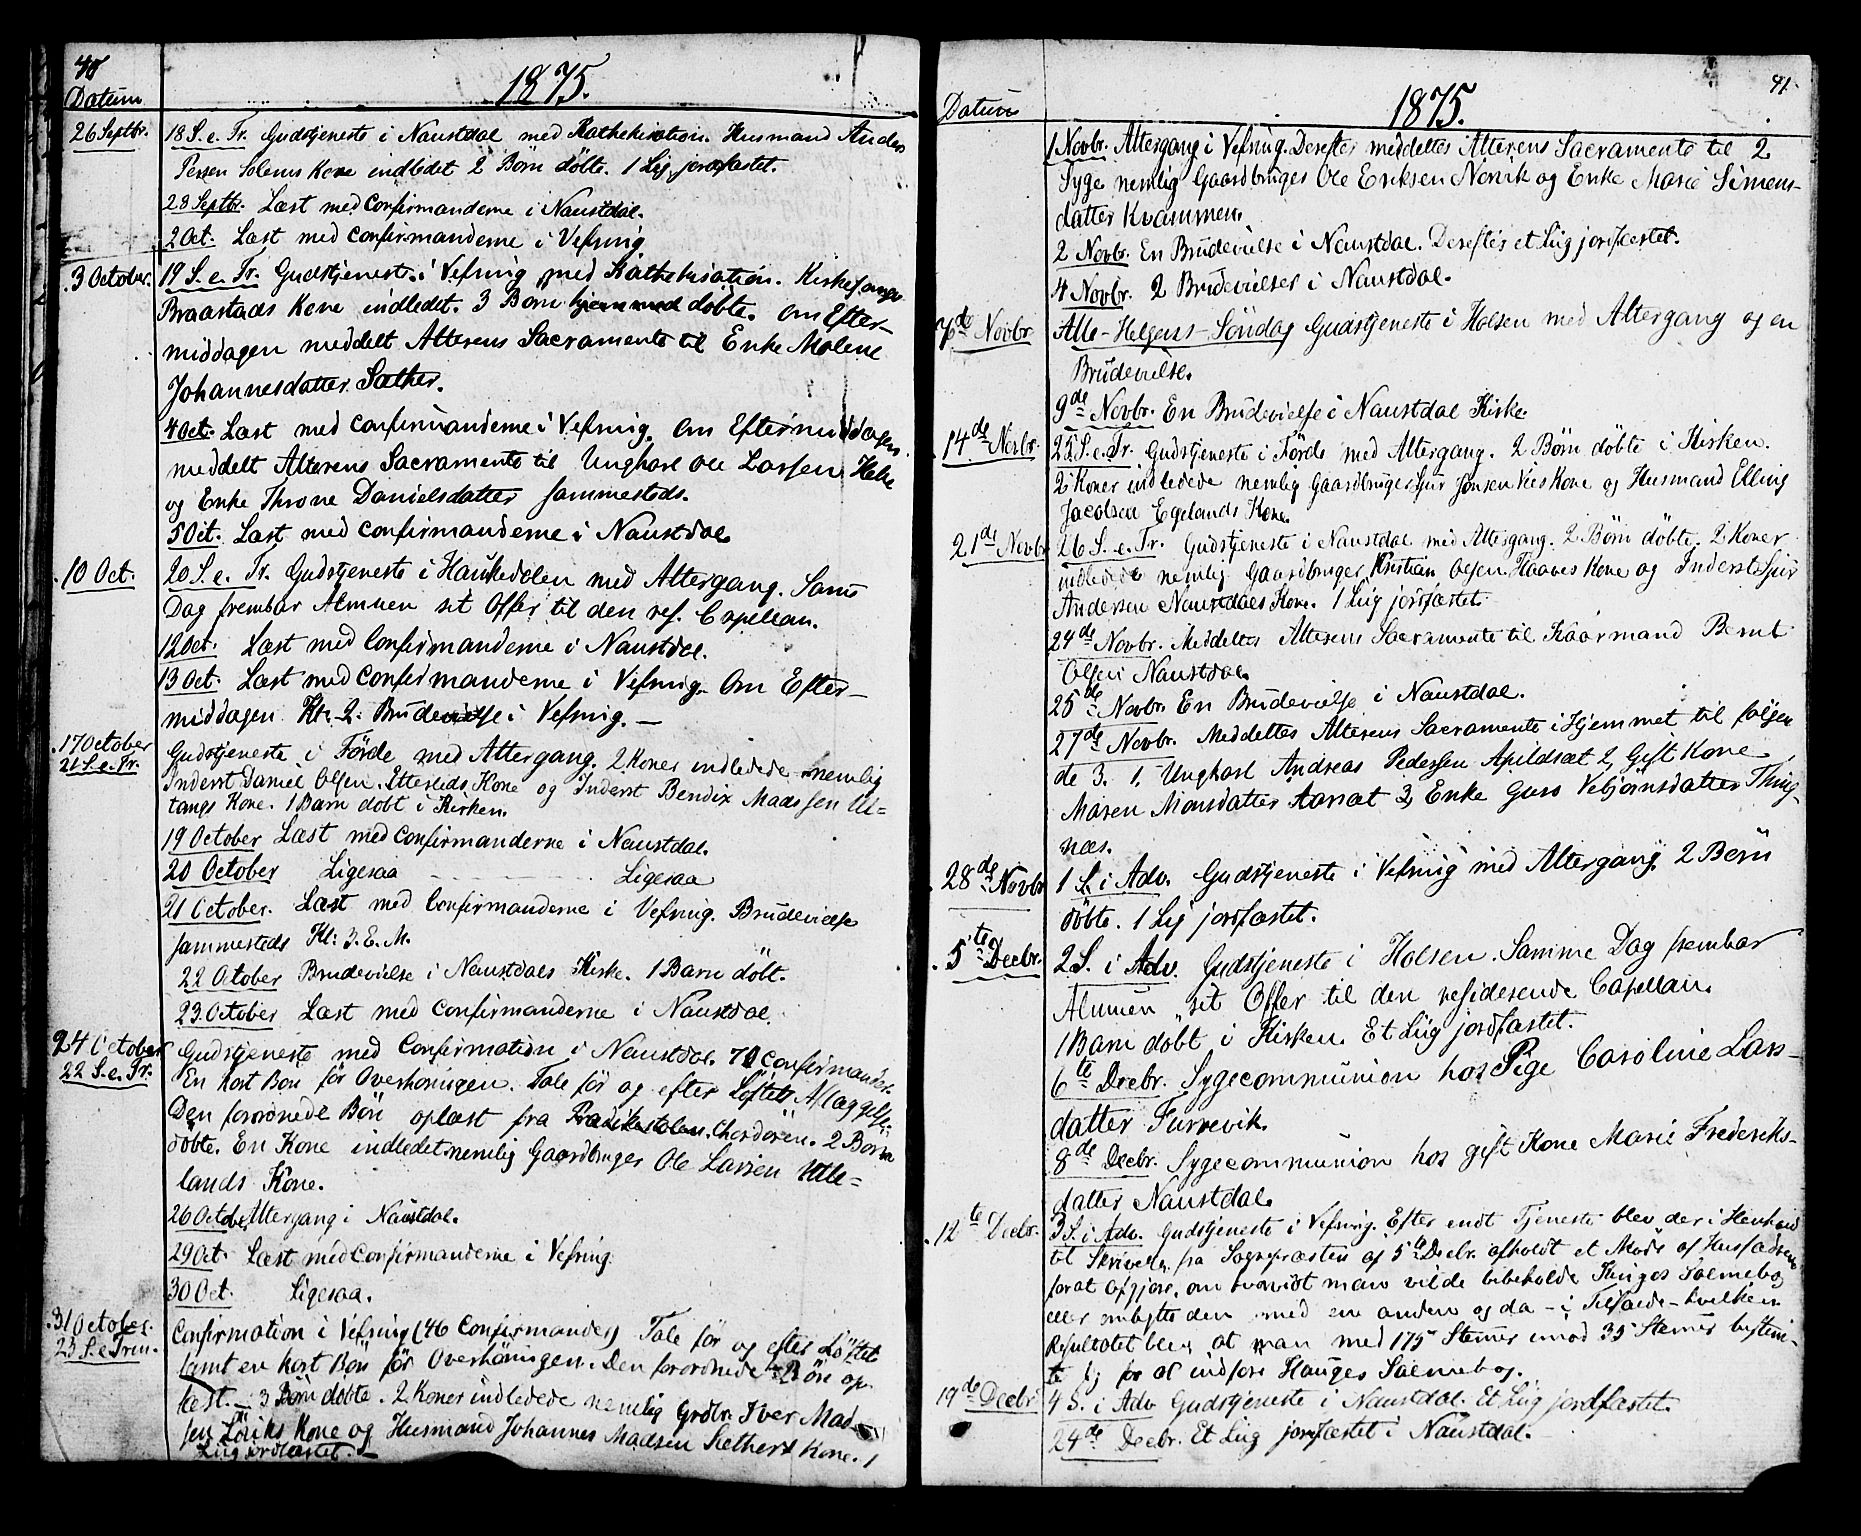 40
1875.
Datum
26 Septbr. 18 S. e. Tr. Gudstjeneste i Naustdal med Kathekisation. Husmand Anders
Persen Solems Kone indledet 2 Börn döbte. 1 Lig jordfæstet.
28 Septbr. Læst med Confirmanderne i Naustdal.
2 Oct. Læst med Confirmanderne i Vefring
3 October. 19 S. e. Tr. Gudstjeneste i Vefring med Kathekisation. Kirkesanger
Braastads Kone indledet. 3 Börn hjemmed döbte. Om Efter-
middagen meddelt Alterens Sacramente til Enke Malene
Johannesdatter Sæther.
4 Oct. Læst med Confirmanderne i Vefring. Om Eftermiddagen
meddelt Alterens Sacramente til Ungkarl Ole Larssen Helle
og Enke Throne Danielsdatter sammesteds.
5 Oct. Læst med Confirmanderne i Naustdal
10 Oct. 20 S. e. Tr. Gudstjeneste i Haukedalen med Altergang. Samme
Dag frembar Almuen sit Offer til den res. Capellan.
12 Oct. Læst med Confirmanderne i Naustdal.
13 Oct. Læst med Confirmanderne i Vefring. Om Efter-
middagen Kl. 2. Brudevielse i Vefring. —
17 October
21 S. e. Tr. Gudstjeneste i Förde med Altergang. 2 Koner indledede nemlig
Inderst Daniel Olsen Kone og Inderst Bendix Madssen Ul-
tangs Kone. 1 Barn döbt i Kirken.
19 October Læst med Confirmanderne i Naustdal.
20 October Ligesaa Ligesaa
21 October. Læst med Confirmanderne i Vefring. Brudevielse
sammesteds Kl: 3. E. M.
22 October Brudevielse i Naustdals Kirke. 1 Barn döbt.
23 October Læst med Confirmanderne i Naustdal.
24 October
22 S. e. Tr. Gudstjeneste med Confirmation i Naustdal. Confirmander.
En kort Bön för Overhöringen. Tale för og efter Löftets Aflæggelse.
Den forordnede Bön oplæst fra Prædikestolen. Chordören. 2 Börn
döbte. En Kone indledet nemlig Gaardbruger Ole Larsen Ulle-
lands Kone.
26 October Altergang i Naustdal.
29 Oct. Læst med Confirmanderne i Vefring.
30 Oct. Ligesaa.
31 October.
23 S. e Trin. Confirmation i Vefring (46 Confirmander) Tale för og efter Löftet
samt en kort Bön för Overhöringen. Den forordnede Bön op-
læst. — 3 Börn döbte. 2 Koner indledede nemlig Grdbr. Iver Mad-
sen Löriks Kone og Husmand Johannes Madsen Sæthers Kone. 1
Liig jordfæstet. —
41.
1875.
Datum
1 Novbr. Altergang i Vefring. Derefter meddeltes Alterens Sacramente til 2
Syge nemlig Gaardbruger Ole Eriksen Norvik og Enke Marie Simens-
datter Kvammen.
2 Novbr. En Brudevielse i Naustdal. Derefter et Liig jordfæstet.
4 Novbr. 2 Brudevielser i Naustdal.
7de Novbr Alle-Helgens-Söndag Gudstjeneste i Holsen med Altergang og en
Brudevielse.
9de Novbr. En Brudevielse i Naustdal Kirke.
14de Novbr. 25 S. e. Tr. Gudstjeneste i Förde med Altergang. 2 Börn döbte i Kirken.
2 Koner indledede nemlig Gaardbruger Sjur Jonsen Vies Kone og Husmand Elling
Jacobsen Egelands Kone.
21de Novbr 26 S. e. Tr. Gudstjeneste i Naustdal med Altergang. 2 Börn döbte. 2 Koner
indledede nemlig Gaardbruger Kristian Olsen Flaaves Kone og Inderst Sjur
Andersen Naustdals Kone. 1 Liig jordfæstet.
24de Novbr. Meddeltes Alterens Sacramente til Kaarmand Bernt
Olsen Naustdal.
25de Novbr. En Brudevielse i Naustdal.
27de Novbr. Meddeltes Alterens Sacramente i Hjemmet til følgen-
de 3. 1, Ungkarl Andreas Pedersen Apildsæt 2, Gift Kone
Maren Monsdatter 3, Enke Guro Vebjörnsdatter Thing-
næs.
28de Novbr 1 S. i Adv. Gudstjeneste i Vefring med Altergang. 2 Börn
döbte. 1 Lig jordfæstet.
5te Decbr. 2 S. i Adv. Gudstjeneste i Holsen. Samme Dag frembar
Almuen sit Offer til den residerende Capellan.
1 Barn döbt i Kirken. Et Liig jordfæstet.
6te Decbr. Sygecommunion hos Pige Caroline Lars-
datter Furrevik.
8de Decbr. Sygecommunion hos gift Kone Marie Frederiks-
datter Naustdal.
12te Decbr. 3 S. i Adv. Gudstjeneste i Vefring. Efter endt Tjeneste blev der i Henhold
til Skrivelse fra Sognepræsten af 5te Decbr. afholdt et Möde af Husfædrene
for at afgjöre, om hvorvidt man vilde bibeholde Kingos Salmebog
eller ombytte den med en anden og da – i Tilfælde – hvilken
Resultatet blev, at man med 175 Stemer imod 35 Stemer bestem-
te sig for at indføre Hauges Salmebog.
19de Decbr 4 S. i Adv Gudstjeneste i Naustdal. Et Liig jordfæstet.
24de Decbr. Et Liig jordfæstet i Naustdal.